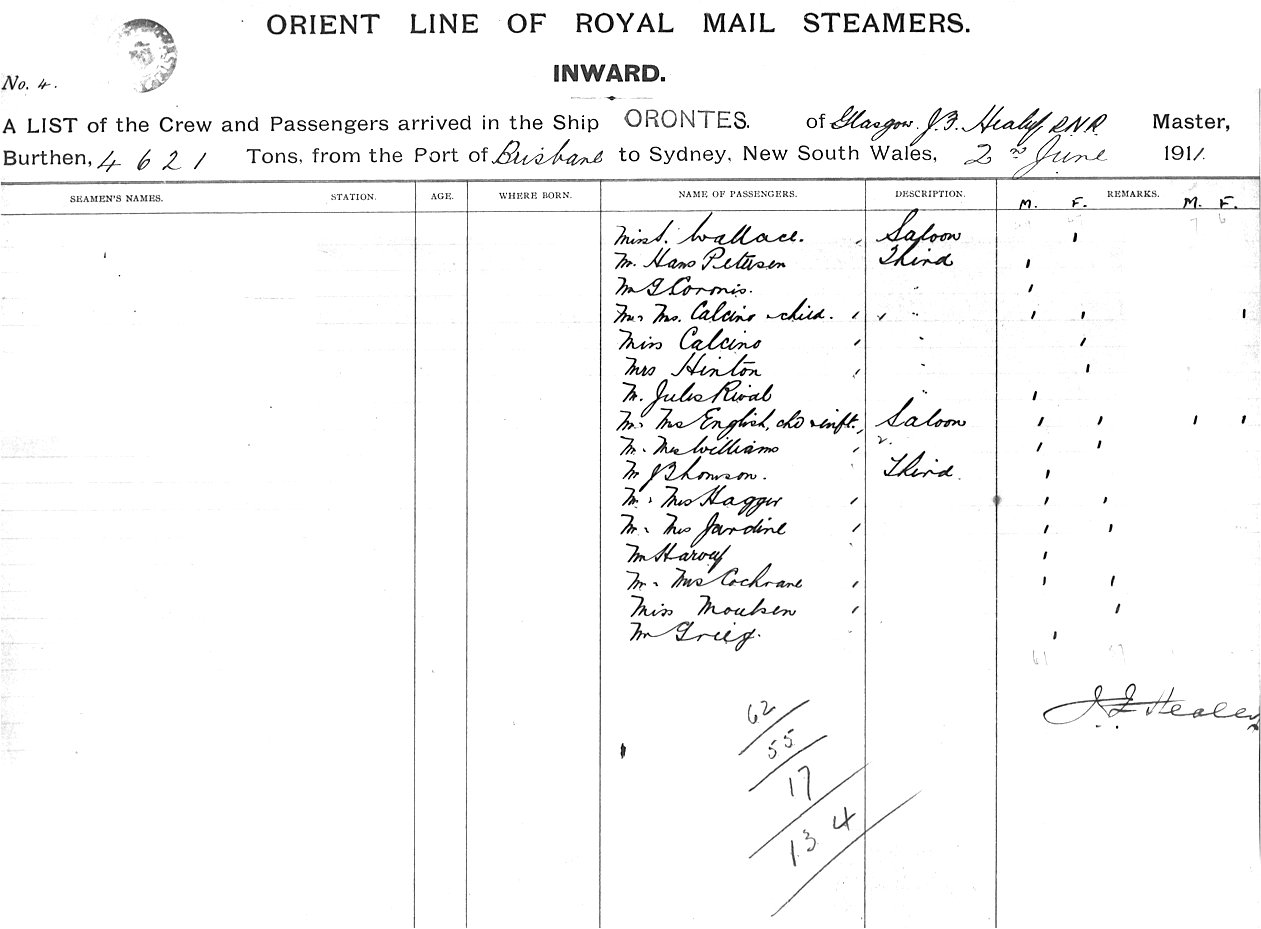 ORIENT LINE OF ROYAL MAIL STEAMERS.
INWARD.
No. 4.
A LIST of the Crew and Passengers arrived in the Ship ORONTES. of Glasgow. J.F. Healey R.N.R. Master,
Burthen, 4621 Tons, from the Port of Brisbane to Sydney, New South Wales, 2nd June 1911.
SEAMEN'S NAMES. STATION. AGE. WHERE BORN. NAME OF PASSENGERS. DESCRIPTION. REMARKS.
M. F. M. F.
Miss S. Wallace. Saloon
Mr. Hans Petersen Third
Mr G Coronis. "
Mr. Mrs. Calcino child. "
Miss Calcino "
Mrs Hinton "
Mr. Jules Rival "
Mr. Mrs English, chd & inft. Saloon
Mr. Mrs Williams "
Mr J Thomson. Third.
Mr. Mrs Hagger
Mr. Mrs Jardine
Mr Harvey
Mr. Mrs Cochrane
Miss Moulsen
Mr Grieg.
61 17
J F Healey
62
55
17
134